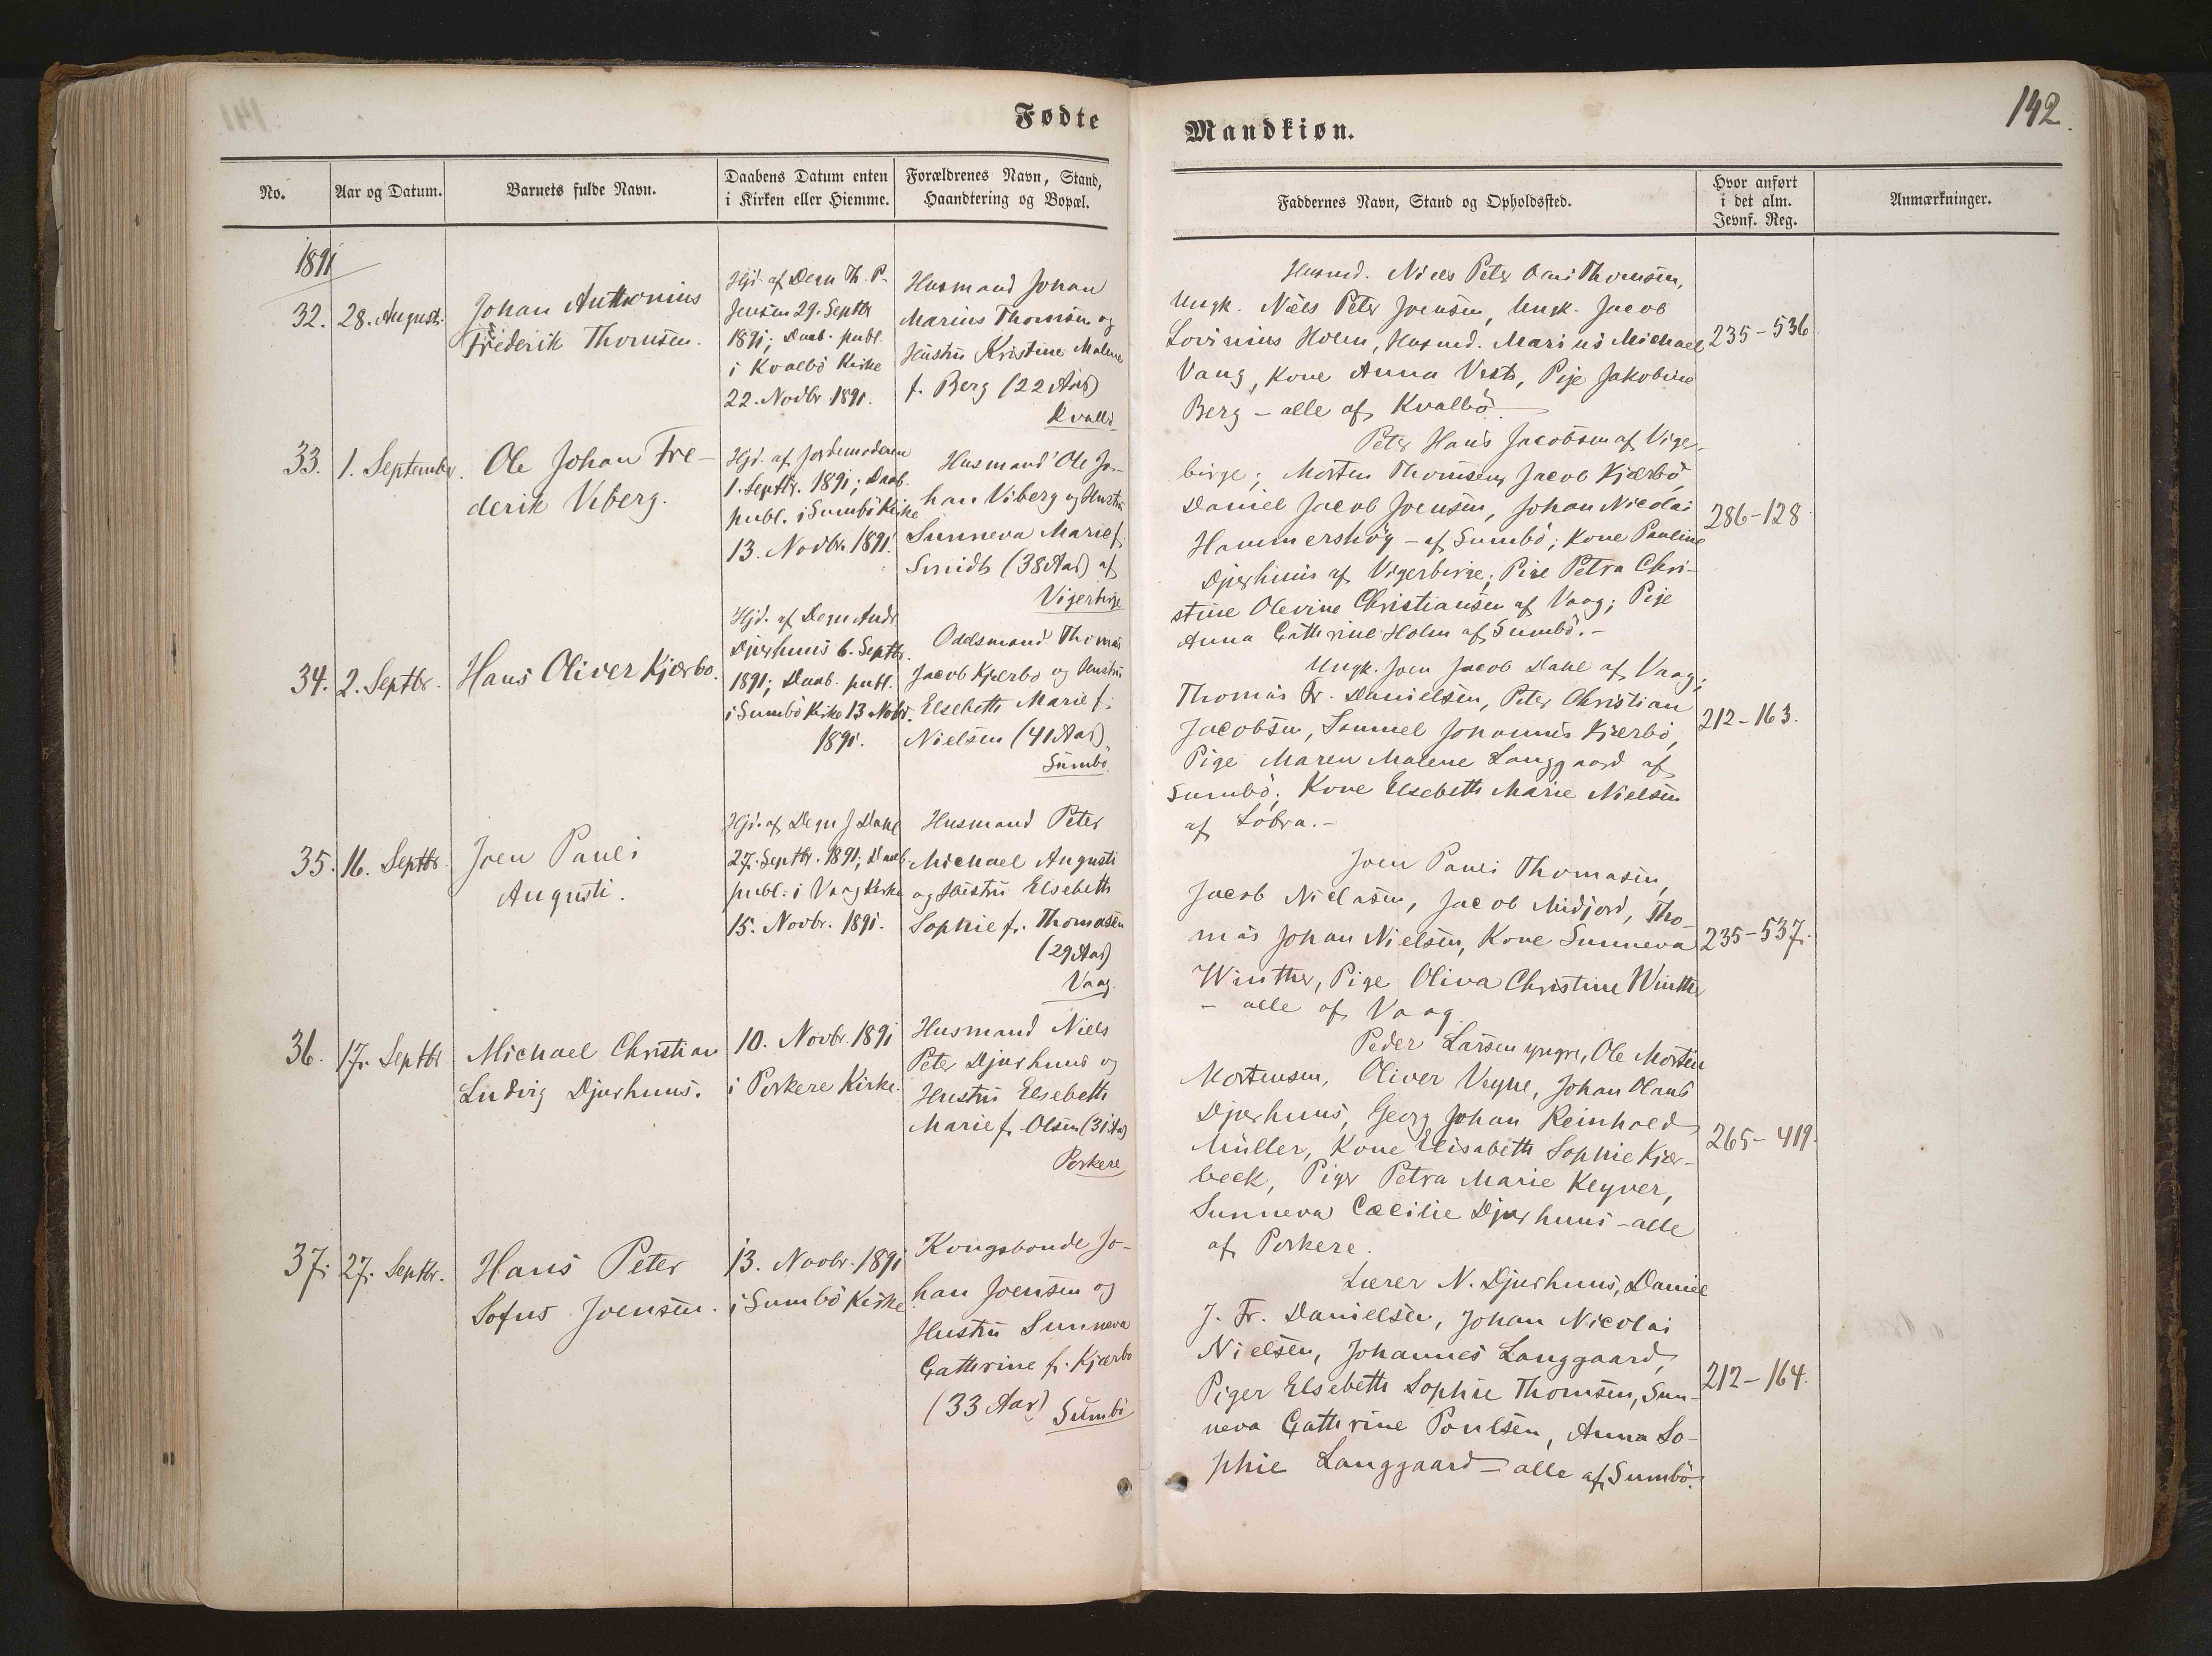 Fødte
No.
Aar og Datum.
Barnets fulde Navn.
Daabens Datum enten
i Kirken eller Hiemme.
Forældrenes Navn, Stand,
Haandtering og Bopæl.
1891
32.
28. August.
Johan Anthonius
Frederik Thomsen.
Hjd. af Degn Th. P.
Jensen 29. Septbr
1891; Daab. publ.
i Kvalbö Kirke
22. Novbr 1891.
Husmand Johan
Marius Thomsen og
Hustru Kristine Malene
f. Berg (22 Aar)
Kvalbö
33.
1. September.
Ole Johan Fre-
derik Viberg.
Hjd. af Jordemoderen
1. Septbr. 1891; Daab.
publ. i Sumbö Kirke
13. Novbr. 1891.
Husmand Ole Jo-
han Viberg og Hustru
Sunneva Marie f.
Smidt (38 Aar) af
Vigerbirge
34.
2. Septbr.
Hans Oliver Kjærbo.
Hjd. af Degn Andr.
Djurhuus 6. Septbr.
1891; Daab. publ.
i Sumbö Kirke 13 Novbr.
1891.
Odelsmand Thomas
Jacob Kjærbo og Hustru
Elsebeth Marie f.
Nielsen (41 Aar)
Sumbö
35.
16. Septbr
Joen Pauli
Augusti.
Hjd. af Degn J Dahl
27. Septbr. 1891; Daab
publ. i Vaag Kirke
15. Novbr. 1891.
Husmand Peter
Michael Augusti
og Hustru Elsebeth
Sophie f. Thomasen
(29 Aar)
Vaag.
36.
17. Septbr
Michael Christian
Ludvig Djurhuus.
10. Novbr. 1891
i Porkere Kirke.
Husmand Niels
Peter Djurhuus og
Hustru Elsebeth
Marie f. Olsen (31 Aar)
Porkere
37.
27. Septbr.
Hans Peter
Sofus Joensen.
13. Novbr. 1891
i Sumbö Kirke.
Kongsbonde Jo-
han Joensen og
Hustru Sunneva
Cathrine f. Kjærbo
(33 Aar) Sumbö
142.
Mandkiøn.
Faddernes Navn, Stand og Opholdssted.
Hvor anført
i det alm.
Jevnf. Reg.
Anmærkninger.
Husmd. Niels Peter Thomsen,
Ungk. Niels Peter Joensen, Ungk. Jacob
Lovinius Holm, Husmd. Marius Michael
Vang, Kone Anna Vest, Pige Jakobine
Berg - alle af Kvalbö.
235-536
Peter Hans Jacobsen af Viger-
birge; Morten Thomsen, Jacob Kjærbö,
Daniel Jacob Joensen, Johan Nicolai
Hammershög - af Sumbö; Kone Pauline
Djurhuus af Vigerbirge; Pige Petra Chri-
stine Olevine Christiansen af Vaag; Pige
Anna Cathrine Holm af Sumbö.-
286-128
Ungk. Joen Jacob Dahl af Vaag;
Thomas Fr. Danielsen, Peter Christian
Jacobsen, Samuel Johannes Kjærbö,
Pige Maren Malene Langgaard af
Sumbö; Kone Elsebeth Marie Nielsen
af Lobra.-
212-163.
Joen Pauli Thomasen,
Jacob Nielsen, Jacob Midjord, Tho-
mas Johan Nielsen, Kone Sunneva
Winther, Pige Oliva Christine Winther
- alle af Vaag
235-537.
Peder Larsen yngre, Ole Morten
Mortensen, Oliver Veyhe, Johan Olaus
Djurhuus, Georg Johan Reinhold
Müller, Kone Elisabeth Sophie Kjær-
beck, Piger Petra Marie Keyver,
Sunneva Cæcilie Djurhuus - alle
af Porkere.
265-419.
Lærer N. Djurhuus, Daniel
J. Fr. Danielsen, Johan Nicolai
Nielsen, Johannes Langgaard,
Piger Elsebeth Sophie Thomsen, Sun-
neva Cathrine Poulsen, Anna So-
phie Langgaard - alle af Sumbö.
212-164.